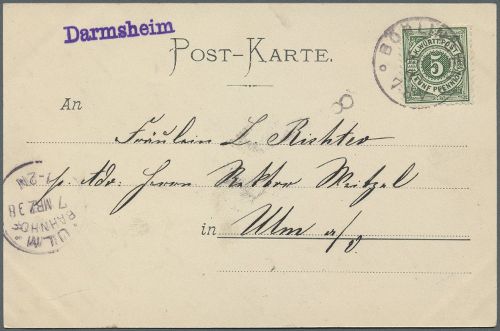 Darmsheim
POST-KARTE.
K. WÜRTT. POST
5
FÜNF PFENNIG
BÖBLIN
7
An
Fräulein L. Richter
p. Adr. Herrn Rektor Weitzel
in Ulm a/D.
1-2N
7 MRZ 98
BAHNHOF
ULM
8